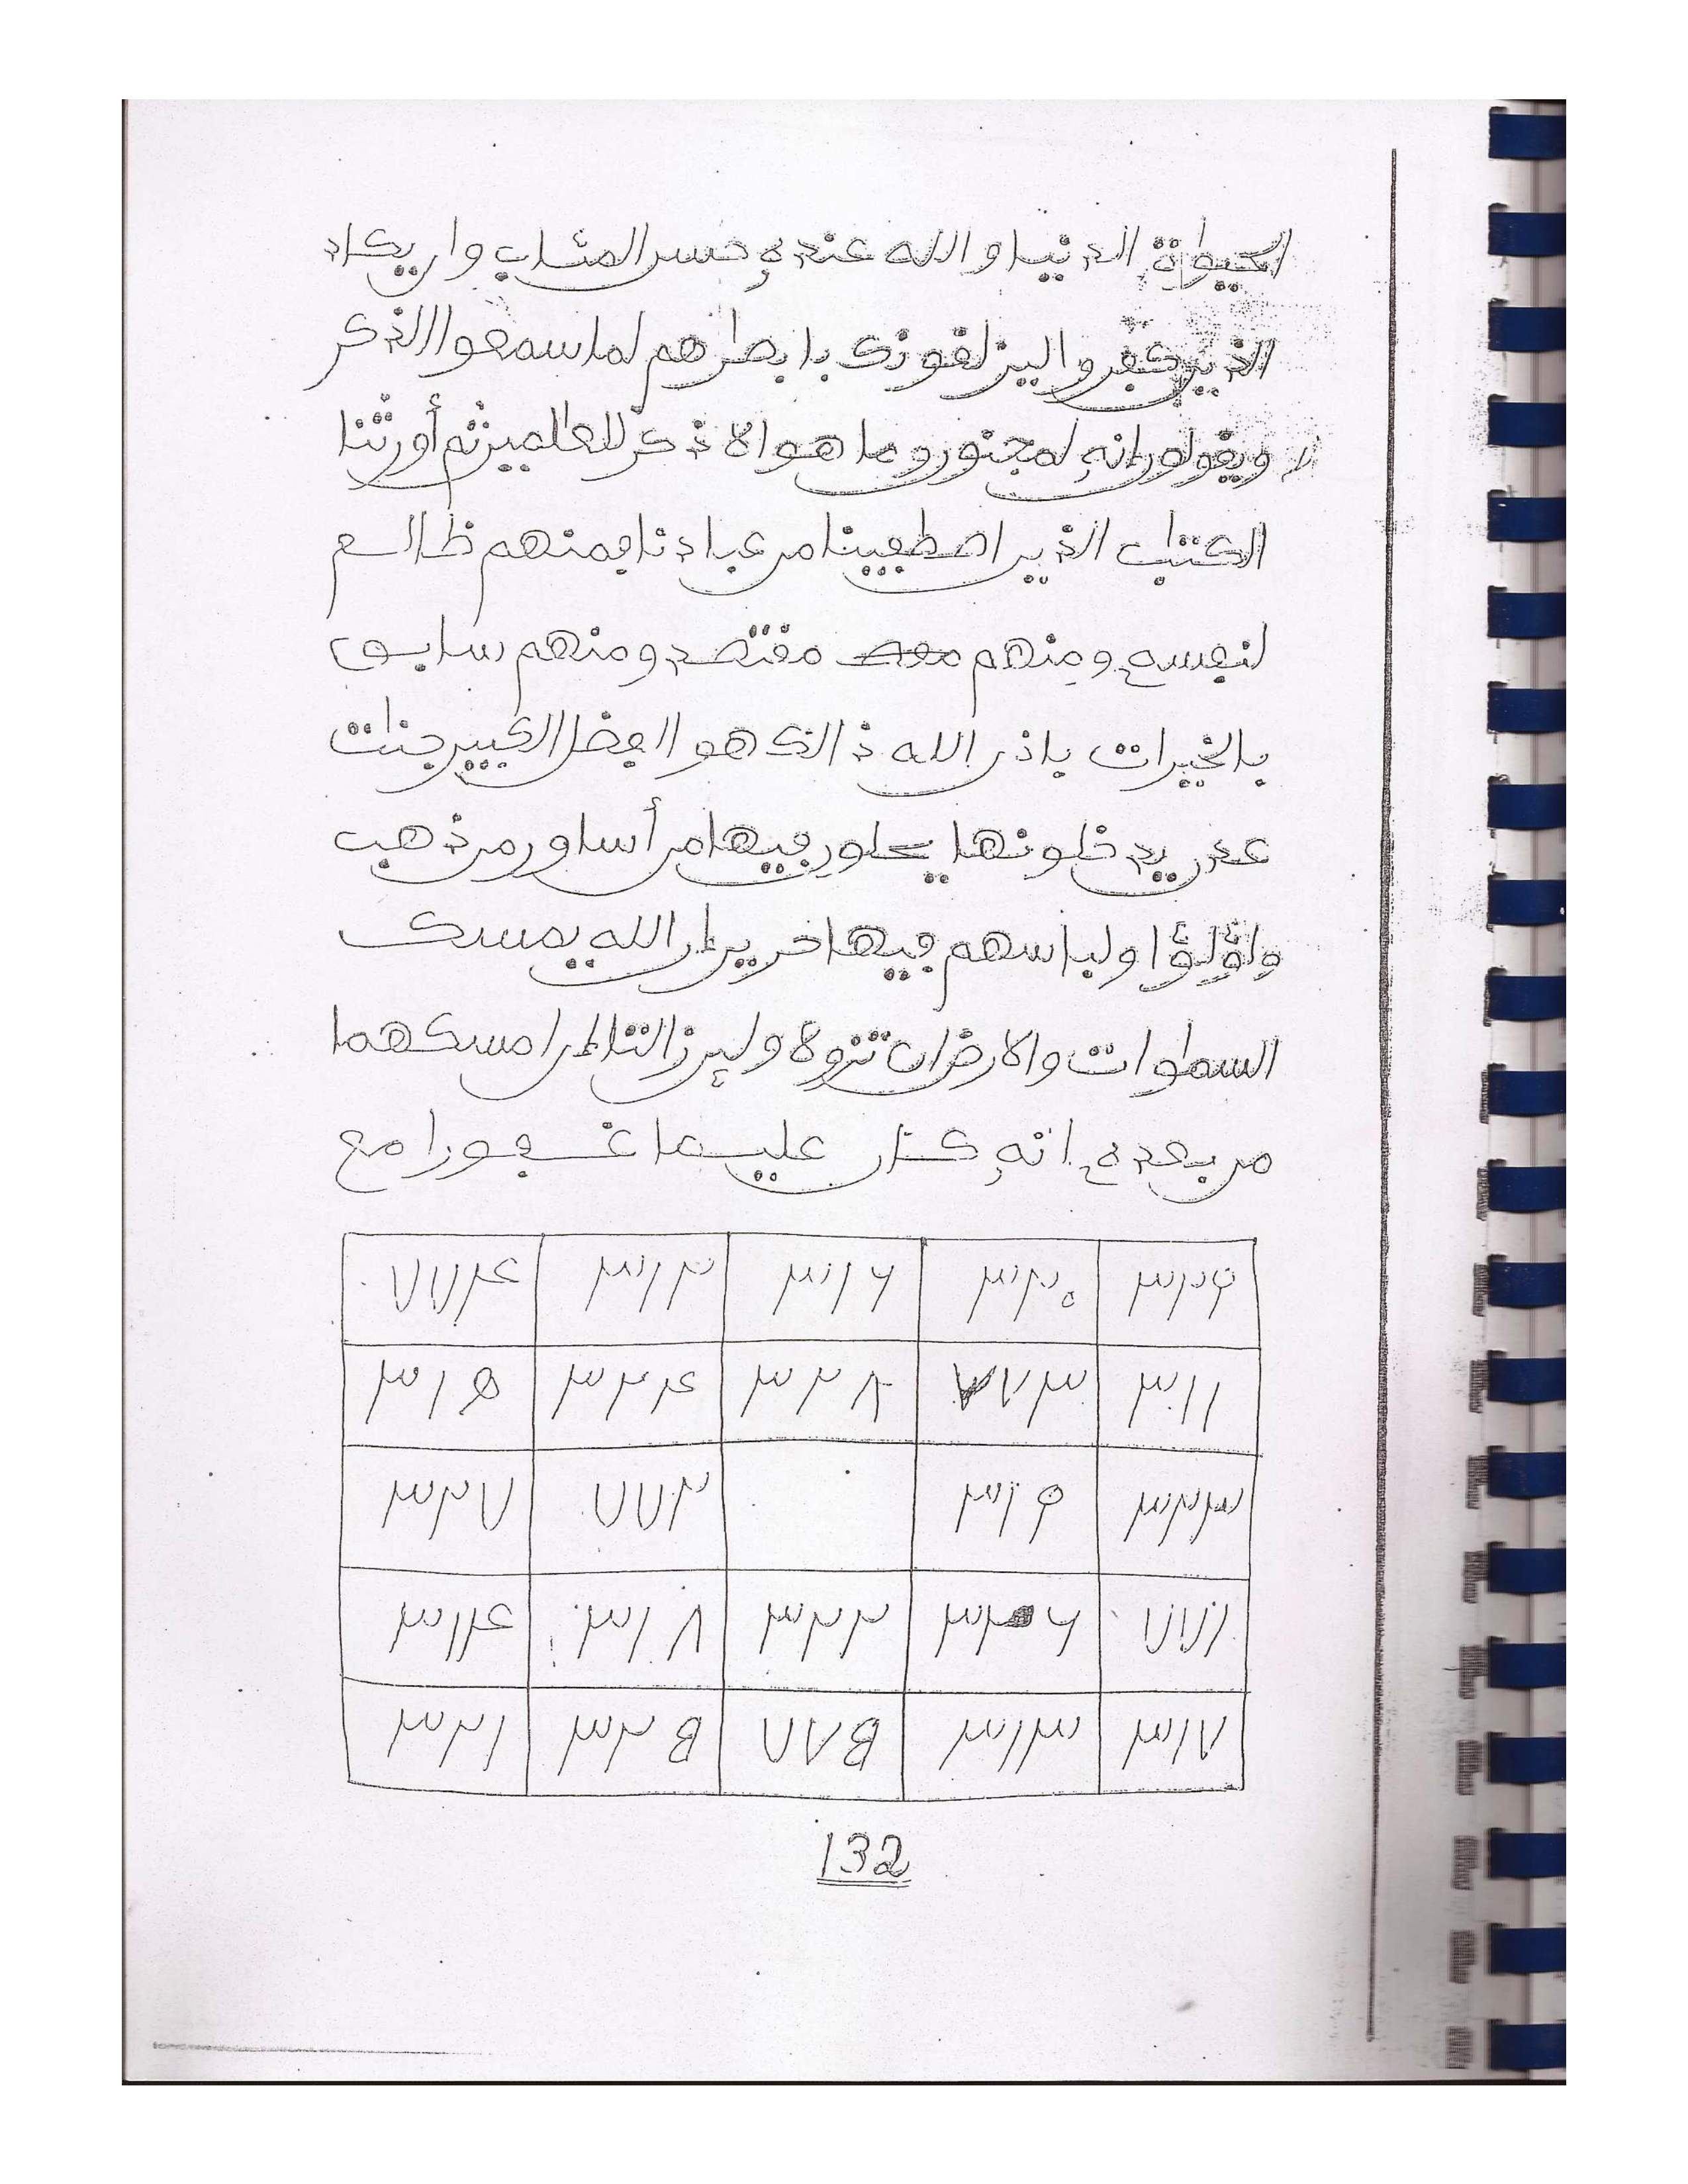 الحيواة الدنيا والله عنده حسن المئاب وان يكاد
الذين كفروا ليزلقونك بابصرهم لما سمعوا الذكر
ويقولون انه لمجنون وما هو الا ذكر للعلمين ثم أورثنا
الكتب الذين اصطفينا من عبادنا فمنهم ظالم
لنفسه ومنهم مقتصد ومنهم سابق
بالخيرات باذن الله ذالك هو الفضل الكبير جنات
عدن يدخلونها يحلون فيها من أساور من ذهب
ولؤلؤا ولباسهم فيها حرير ان الله يمسك
السماوات والارض ان تزولا ولين زالتا ان امسكهما
من بعده انه كان عليما غفورا مع
٣٢٩ ٣٢٠ ٣١٦ ٣١٢ ٧٧٤
٣١١ ٧٧٣ ٣٢٨ ٣٢٤ ٣١٥
٣٢٣ ٣١٩ ٧٧٢ ٣٢٧
٧٧١ ٣٢٦ ٣٢٢ ٣١٨ ٣١٤
٣١٧ ٣١٣ ٧٧٥ ٣٢٥ ٣٢١
132